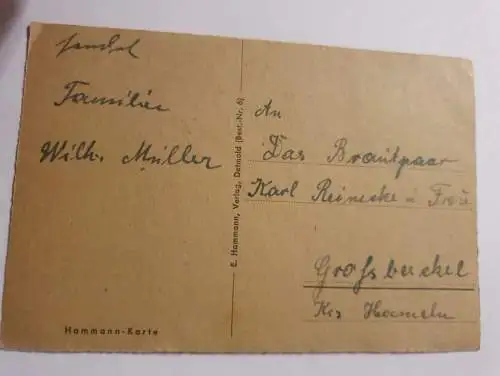 sendet
Familie
Wilh. Müller
Hammann-Karte
E. Hammann, Verlag, Detmold (Best.-Nr. 6)
An
Das Brautpaar
Karl Reineke u Frau
Grossberkel
Krs Hameln